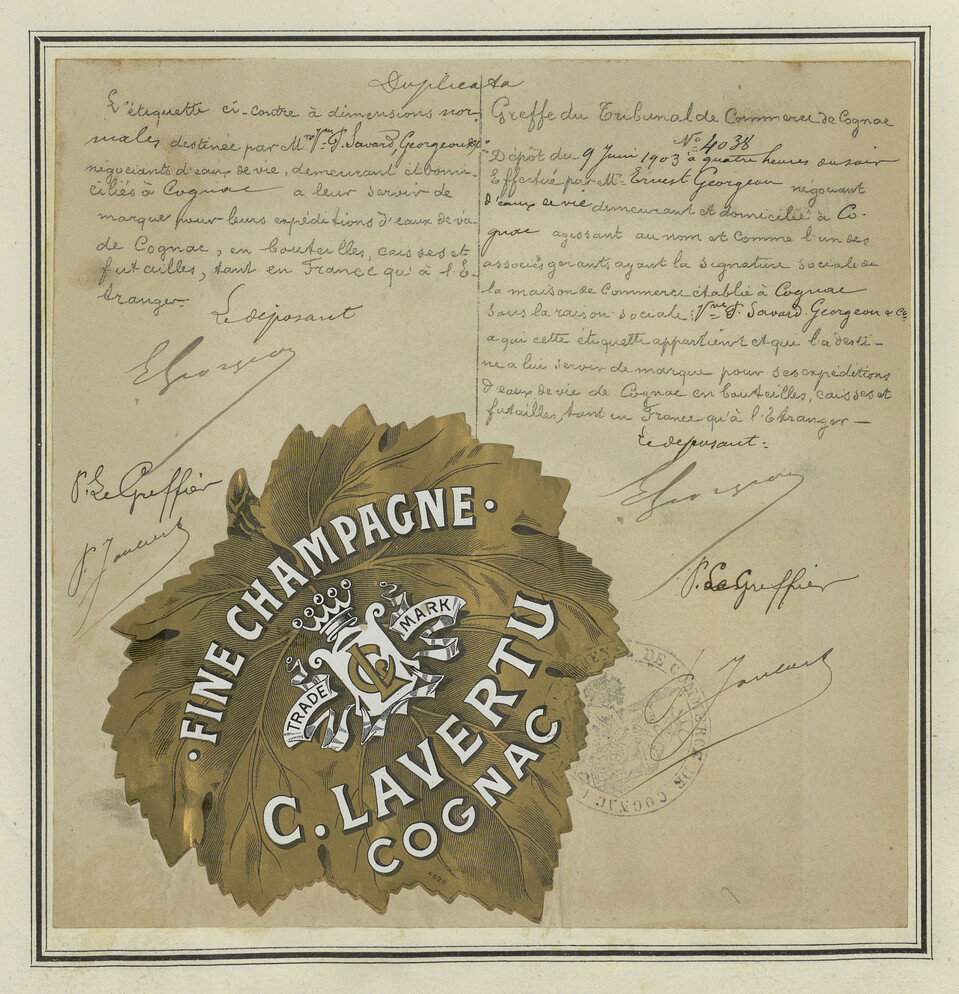 Duplicata
L'étiquette ci-contre à dimensions nor-
males destinée par M^rs V^ve P. Savard, Georgeon & C^o
négociants d'eaux de vie, demeurant et domi-
ciliés à Cognac a leur servir de
marque pour leurs expéditions d'eaux de vie
de Cognac, en bouteilles, caisses et
futailles, tant en France qu'à l'E-
tranger-
Le déposant
EGeorgeon
P. Le Greffier
Greffe du Tribunal de Commerce de Cognac
N° 4038
Dépôt du 9 Juin 1903 à quatre heures du soir
Effectué par M^r Ernest Georgeon négociant
d'eaux de vie demeurant et domicilié à Co-
gnac agissant au nom et comme l'un des
associés gerants ayant la signature sociale de
la maison de Commerce établie à Cognac
sous la raison sociale: V^ve P. Savard. Georgeon & C^o
a qui cette étiquette appartient et qui l'a desti-
née a lui servir de marque pour ses expéditions
d'eaux de vie de Cognac en bouteilles, caisses et
futailles, tant en France qu'à l'Etranger-
Le déposant=
EGeorgeon
P. Le Greffier
·FINE CHAMPAGNE·
TRADE MARK
C. LAVERTU
COGNAC
DE COMMERCE DE COGNAC